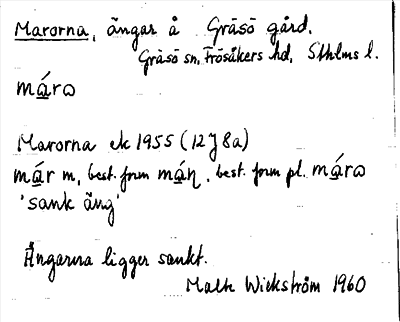 Marorna, ängar å Gräsö gård.
Gräsö sn, Frösåkers hd, Sthlms l.
má̱rɷ
Marorna ek 1955 (12J8a)
má̱r m, best. form má̱ɳ, best. form pl. má̱rɷ
'sank äng'
Ängarna ligger sankt.
Wickström 1960